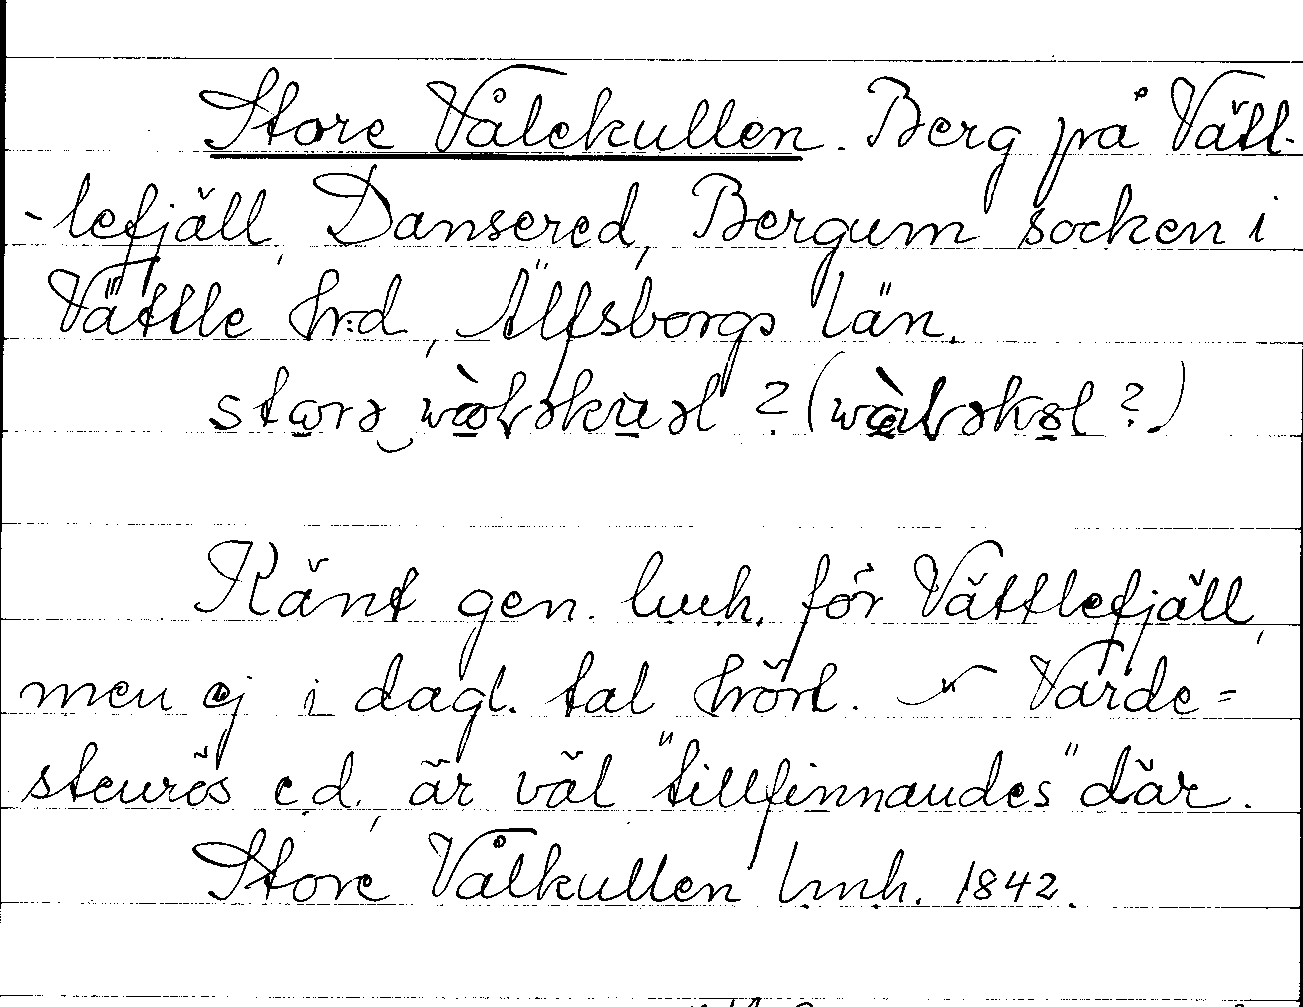 Store Vålekullen. Berg på Vätt-
-lefjäll, Dansered, Bergum socken i
Vättle hrd, Älfsborgs län.
Känt gen. lmh. för Vättlefjäll,
men ej i dagl. tal hört. Varde=
stenrös e.d. är väl "tillfinnandes" där.
Store Vålkullen lmh. 1842.